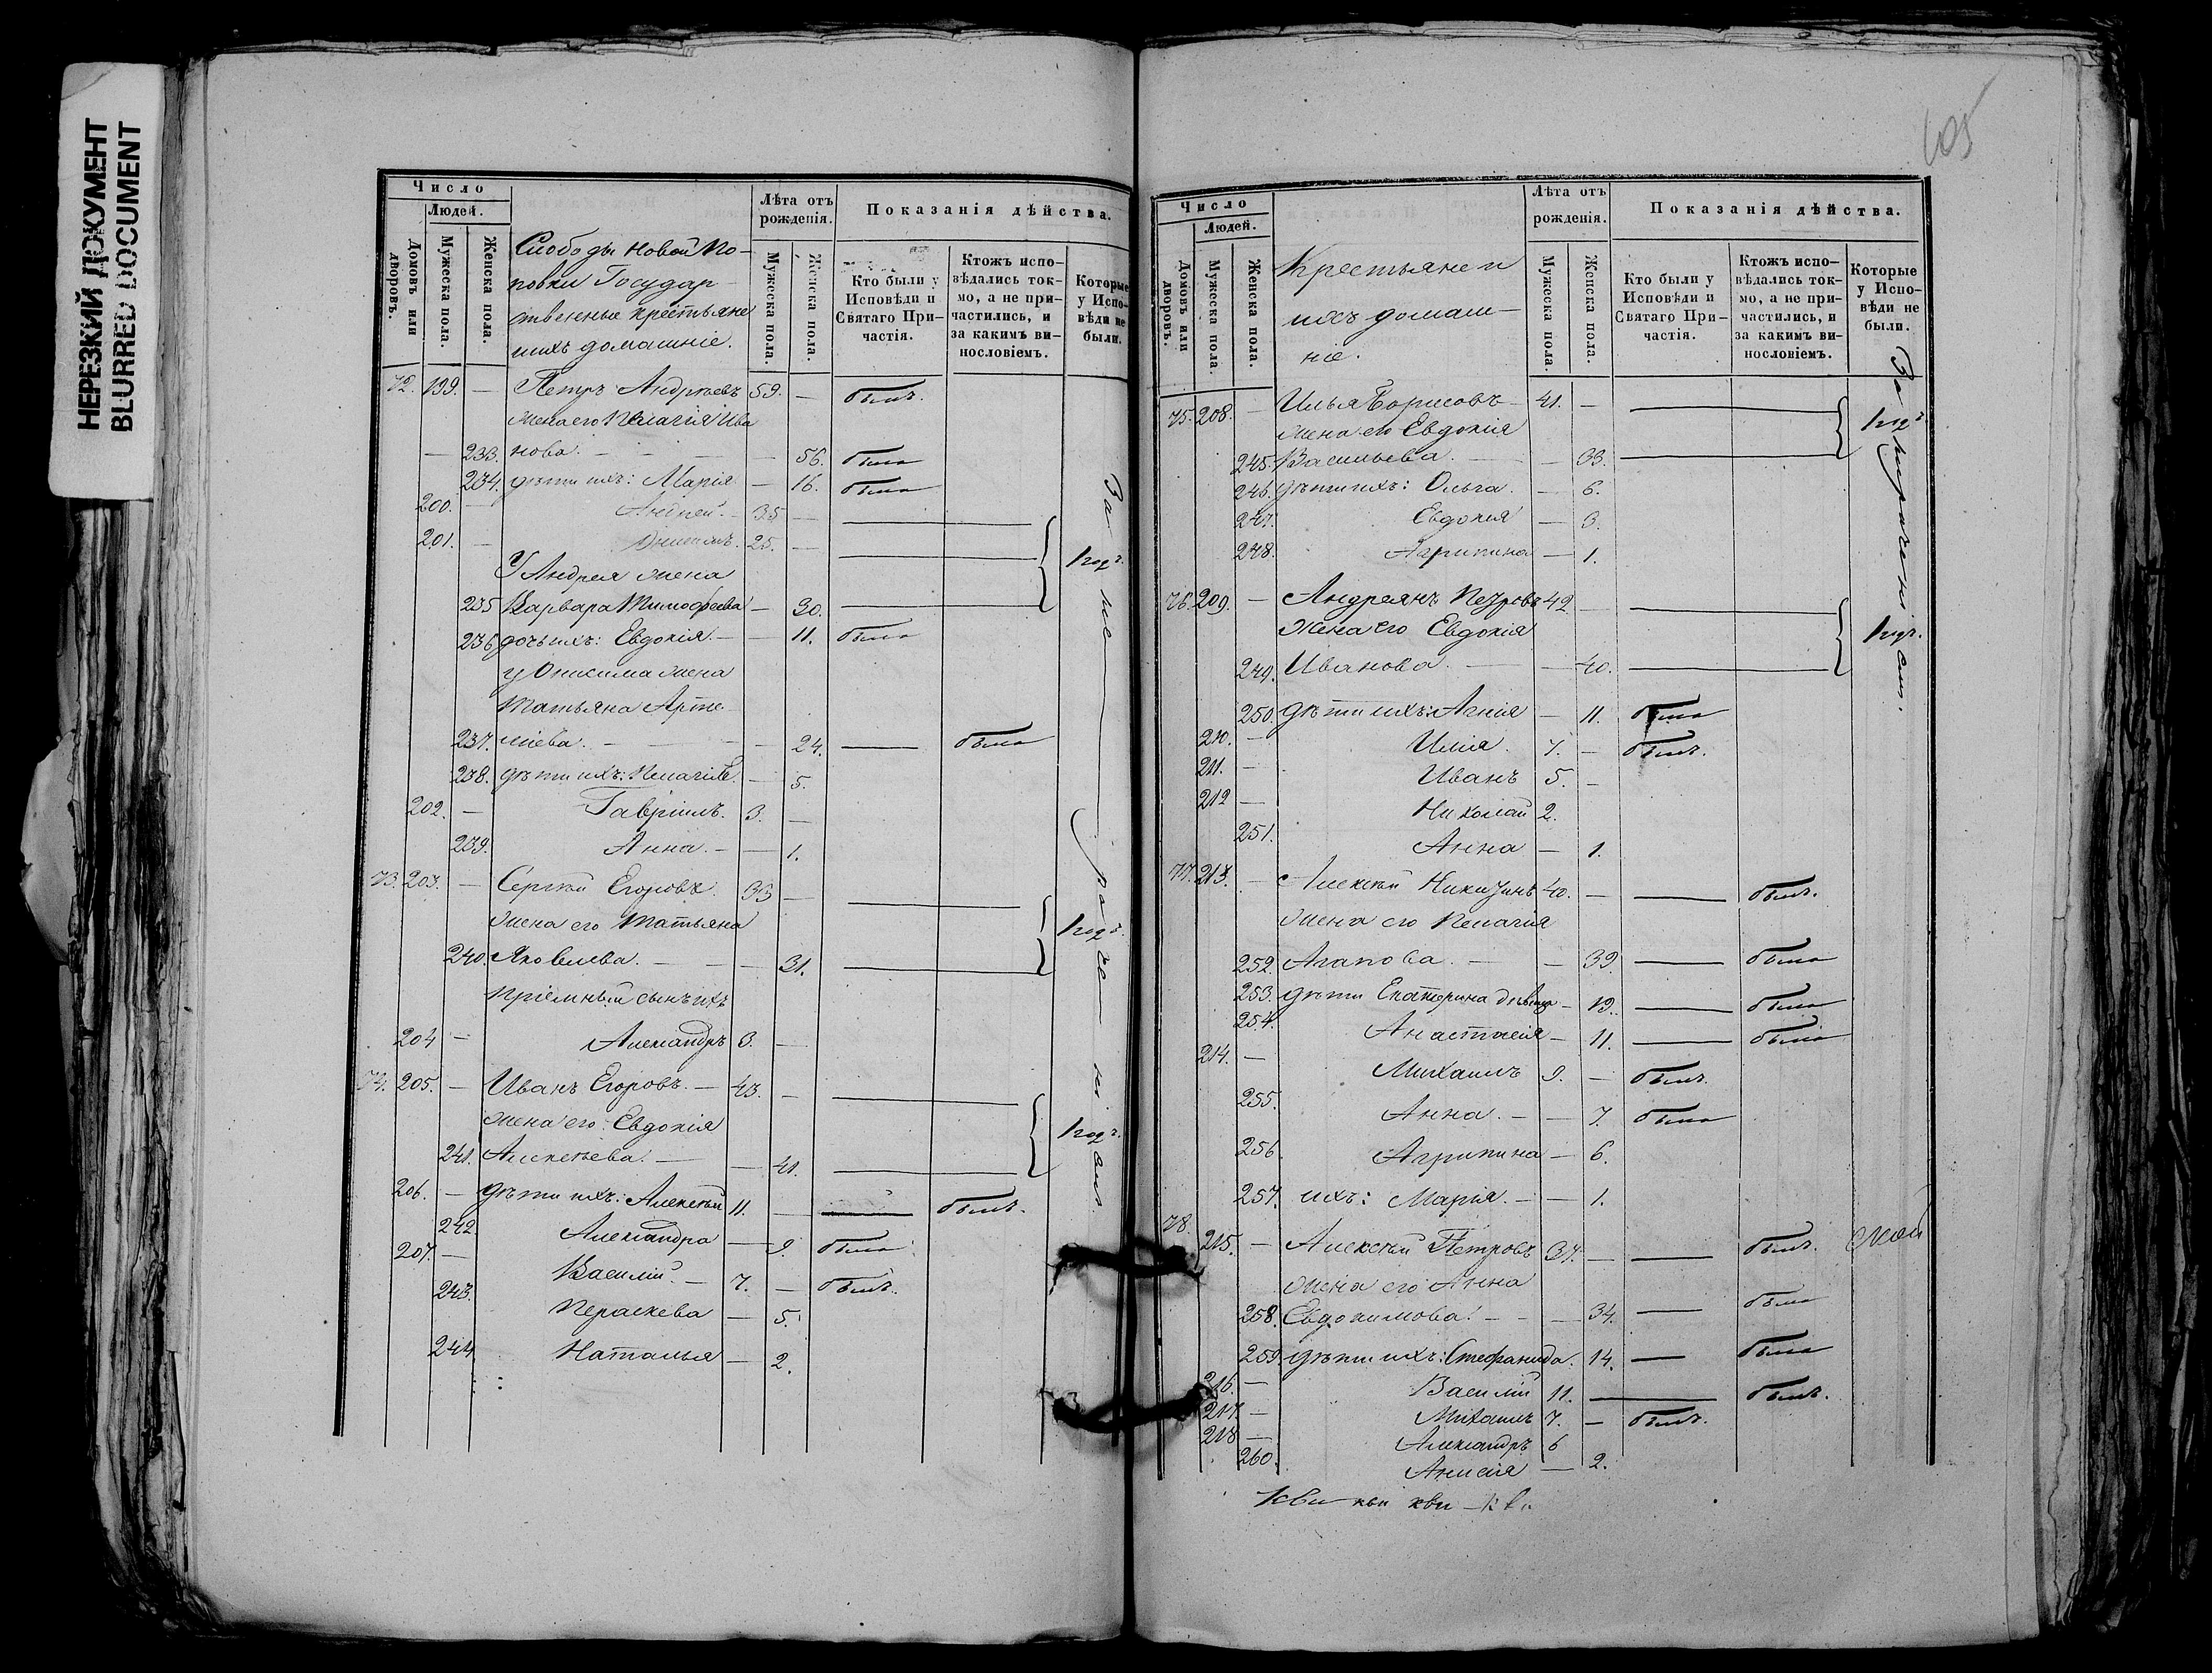 НЕРЕЗКИЙ ДОКУМЕНТ
BLURRED DOCUMENT
Число
Людей.
Домовъ или дворовъ.
Мужеска пола.
Женска пола.
Слободы Новой По-
повки Государ-
ственные крестьяне
и ихъ домашніе.
Лѣта отъ рожденія.
Мужеска пола.
Женска пола.
Показанія дѣйства.
Кто были у Исповѣди и Святаго При-частія.
Ктожъ испо-вѣдались ток-мо, а не при-частились, и за какимъ ви-нословіемъ.
Которые у Испо-вѣди не были.
72. 199. — Петръ Андреевъ 59. — былъ.
жена его Пелагія Ива
— 233. нова. — — 56. была
234. дѣти ихъ: Марія — 16. была
200. — Андрей. — 35 —
201. — Онисимъ. 25. —
У Андрея жена
235 Варвара Тимофеева — 30.
236 дочь ихъ: Евдокія. — — 11. была
у Онисима жена
Татьяна Арте-
237. міева. — — 24. — была
238. дѣти ихъ: Пелагія — 5.
202. — Гавріилъ. 3. —
239. Анна. — — 1.
73. 203. — Сергѣй Егоровъ. 33 —
жена его Татьяна
240. Яковлева. — — 31.
пріемный сынъ ихъ
204 — Александръ 3. —
74. 205. — Иванъ Егоровъ. — 43. —
жена его: Евдокія
241. Алексѣева. — — 41.
206. — дѣти ихъ: Алексѣй 11. — — былъ.
242. Александра — 9. была
207. — Василій. — 7. — былъ.
243. Параскева — 5.
244. Наталья — 2.
За не раче ні емъ
105
Число
Людей.
Домовъ или дворовъ.
Мужеска пола.
Женска пола.
Крестьяне и
ихъ домаш-
ніе.
Лѣта отъ рожденія.
Мужеска пола
Женска пола.
Показанія дѣйства.
Кто были у Исповѣди и Святаго При-частія.
Ктожъ испо-вѣдались ток-мо, а не при-частились, и за какимъ ви-нословіемъ.
Которые у Испо-вѣди не были.
75. 208. — Илья Борисовъ 41. —
жена его Евдокія
245. Васильева. — — 33.
246. дѣти ихъ: Ольга. — 6.
247. Евдокія — 3.
248. Агрипина — 1.
76. 209. — Андреянъ Петровъ 42 —
Жена его Евдокія
249. Иванова. — — 40.
250. дѣти ихъ: Агнія — 11. была
210. — Илія. 7. — былъ.
211. — Иванъ 5. —
212 — Николай 2.
251. Анна — 1.
77. 213. — Алексѣй Никитинъ 40. — — былъ.
жена его Пелагія
252. Агапова. — — 39. — была
253. дѣти Екатерина дѣвица — 19. — была
254. Анастасія — 11. — была
214. — Михаилъ 9. — былъ.
255. Анна. — — 7. была
256 Агрипина — 6.
257. ихъ: Марія. — — 1.
78.
215. — Алексѣй Петровъ 37. — — былъ.
жена его Анна
258. Евдокимова. — — 34. — была
259. дѣти ихъ: Стефанида. 14. — была
216. — Василій 11. — былъ.
217. — Михаилъ 7. — былъ.
218 — Александръ 6
260. Анисія — 2.